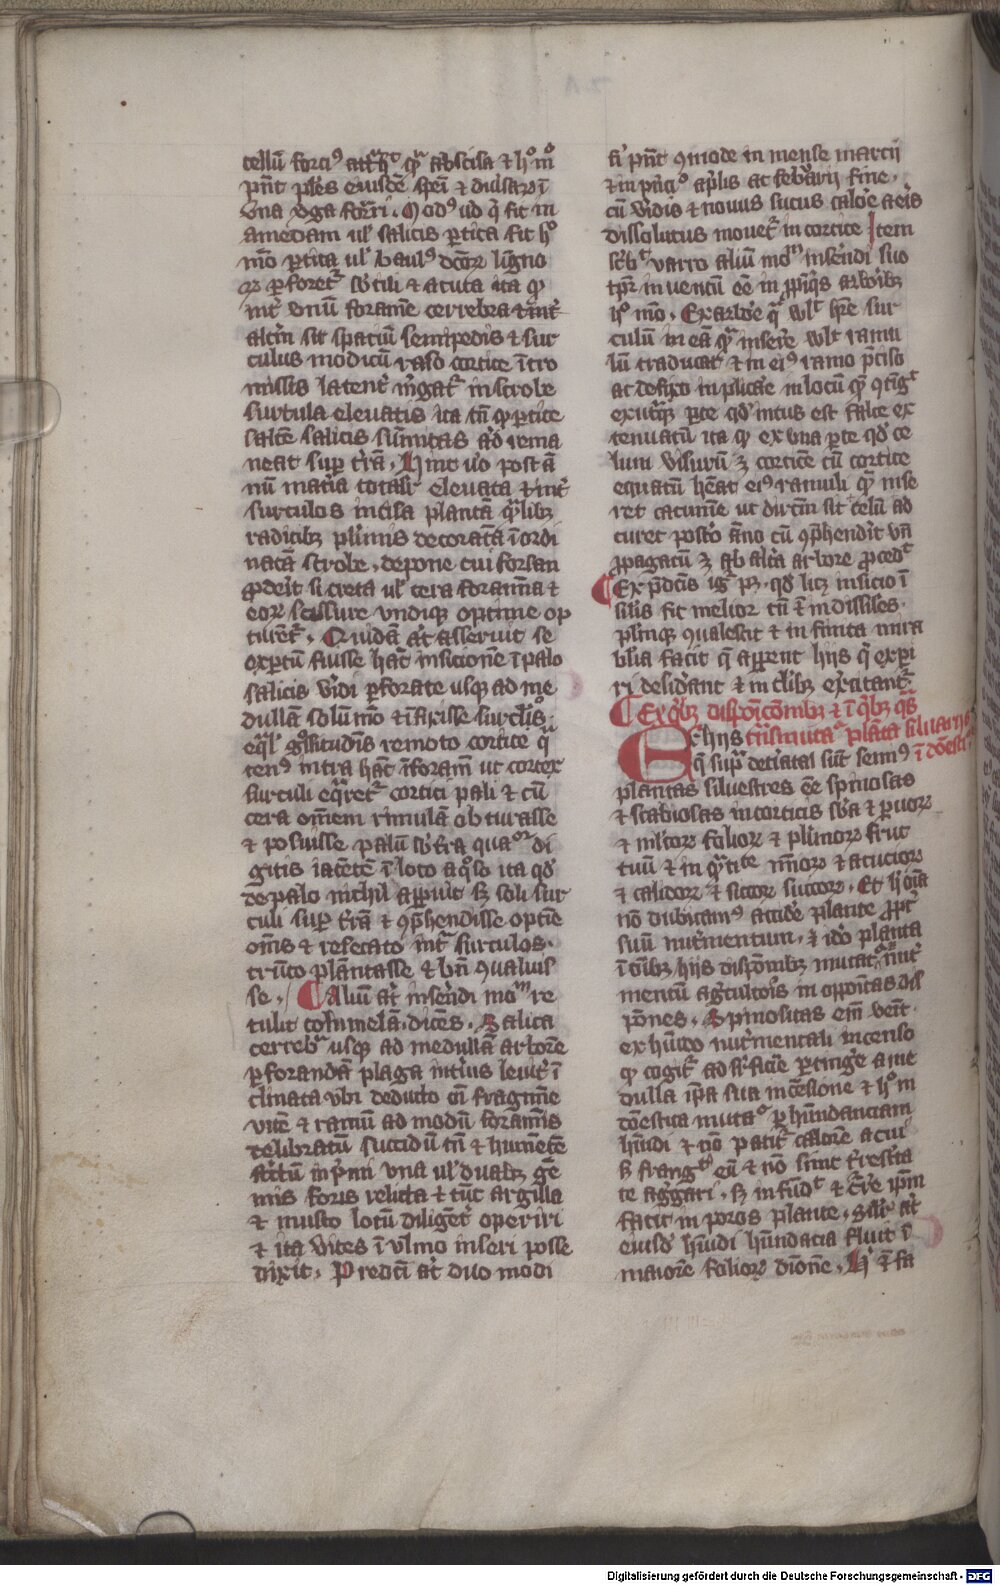 cellū forciꝰ attᵃhᵗ qᵃ abscisa ⁊ hᵒ mᵒ
pn̄t pl̄es eiusdē spēi ⁊ diūsaꝝ ī
vna v̓ga for̄ri. Modꝰ ūo q̄ fit in
amēdam ul̓ salicis ꝑtica fit hᵒ
mō ꝑtica ul̓ baulꝰ dc̄oꝝ ligno
ꝝ ꝑforet᷑ sb̓tili ⁊ acuta ita ꝙ
int̓ vnū foramē terrebra ⁊ int̓
alt̓m sit spaciū semipedis ⁊ sur
culus modicū raso cortice ītro
missis latent̓ m̓gat᷑ in scrobe
surcula eleuatis ita tn̄ ꝙ ꝑtice
saltē salicis sūmitas ad rema
neat suꝑ tr̄ā. Hinc ūo post ā
nū mat̓ia totalr̓ eleuata ⁊ int̓
surculos incisa plantā qᵃlibꝫ
radicibꝫ pl̓imis decoratā ī ordi
natā scrobe. depone cui forsan
ꝓderit si creta ul̓ cera foramīa ⁊
eoꝝ scissure vndiqꝫ optime op
turent᷑. Quidā at̓ asserūt se
exꝑtū fuisse hāc insicionē ī palo
salicis v̓idi ꝑforate usqꝫ ad me
dullā solūmō ⁊ īfixisse surcl̓os
eql̓ gͦssitudīs remoto cortice qᵃ
tenꝰ intra hāc īforam̄ ut cortex
surculi eqᵃret᷑ cortici pali ⁊ cū
cera om̄em rimulā obturasse
⁊ posuisse palū sb̓ t̓ra quaᵒʳ di
gitis iacētē ī loco aqᵒso ita qd̓
de palo nichil appūit sꝫ soli sur
culi suꝑ t̓rā ⁊ ꝯp̄hendisse optīe
om̄s ⁊ resecato int̓ surculos
trūco plātasse ⁊ bn̄ ꝯualuis
se. Aliū at̓ inserēdi moᵐ re
tulit columelā. dicēs. Salica
terrebᵃ usqꝫ ad medullā arborē
ꝑforandā plaga int̓ius leuit̓ ī
clinata vbi deducto oī fragmīe
vitē ⁊ ramū ad modū foramīs
delibratū succidū tn̄ ⁊ humētē
artūm īp̓mi vna ul̓ duabꝫ gē
mis foris relicta ⁊ tūc argilla
⁊ musto locū diligēt̓ operiri
⁊ ita vites ī vlmo inseri posse
dixit. Predcī at̓ duo modi
fi̓ pn̄t ꝯmode in mense marcii
⁊ in pͥncͥoᵒ apͥlis ac febᵃrii fine.
cū v̓idis ⁊ nouus sucus calor̓e aeris
dissolutus mouet᷑ in cortice Item
sc̓bᵗ varro aliū mōᵐ inser̄ndi suo
tpr̓e inuentū eē in ꝓpīqͥs arboribꝫ
hᵒ mō. Ex arbor̓e qᵃ vl̓t hr̄e sur
culū in eā qᵃ inser̓e vl̓t ramu
lū traducat ⁊ in eiꝰ ramo p̓ciso
ac defixo inplicar̓e in locū qᵃ ꝯtīgᵗ
exut̓qꝫ ꝑte qd̓ intus est falce ex
tenuatū ita ꝙ ex vna ꝑte qd̓ ce
lum visurū ꝫ corticē cū cortice
equatū heāt eiꝰ ramuli qᵃ inse
ret cacumē ut dirc̄m sit celū ad
curet post̓o āno cū ꝯp̄hendit vn̄
ꝓpagatū ꝫ ab alt̓a arbore p̄cedᵗ
Ex p̄dcīs igͥ pꝫ. qd̓ licꝫ insicio ī
silis fit melior tn̄ ⁊ in dissiles.
pl̓imqꝫ qualescit ⁊ in finita mira
bl̓ia facit q̄ apparent hiis q̓ exꝑi
ri desid̓ant ⁊ in tl̓ibꝫ exc̓itant᷑
Ex qͥbꝫ disposiconibꝫ ⁊ ī qͥbꝫ qͥs
Ex hiis trāsmuta᷑ plāta siluatris ī domesticā
q̄ supᵃ declaratal sūt scimꝰ
plantas siluestres eē spinosas
⁊ scabiosas in corticis sb̓a ⁊ ꝑuoꝝ
⁊ ml̓toꝝ folioꝝ ⁊ pl̓imoꝝ fruc
tuū ⁊ in qᵃtitᵉ mīoꝝ ⁊ acucioꝝ
⁊ calidoꝝ ⁊ siccoꝝ succoꝝ. Et h̓ oīa
nō dubitamꝰ accid̓e plante ꝓpt̓
suū nut̓mentum. ⁊ idō planta
ī oībꝫ hiis disposibꝫ mutat᷑ nut̓
mentū ag̓cultoris in opp̄oitas dis
pōnes. Spinositas em̄ veīt
ex hūido nut̓mentali incenso
ꝙ cogit᷑ ad sᵃficiē ꝑtinger̓e a me
dulla ip̄a sua incēsione ⁊ hᵒ in
domestica muta᷑ ꝑ hūndanciam
hūidi ⁊ nō patit᷑ calorē acui
sꝫ frangᵗ eū ⁊ nō sinit t̓rest̓ta
te ag̓gari. sꝫ in fūdᵗ ⁊ cr̄e ip̄m
facit in poros plante. Silr̓ at̓
eiusd̓ hūidi hūndācia fluit ī
maiorē folioꝝ dīonē. H̓ ⁊ fa
Digitalisierung gefördert durch die Deutsche Forschungsgemeinschaft - DFG